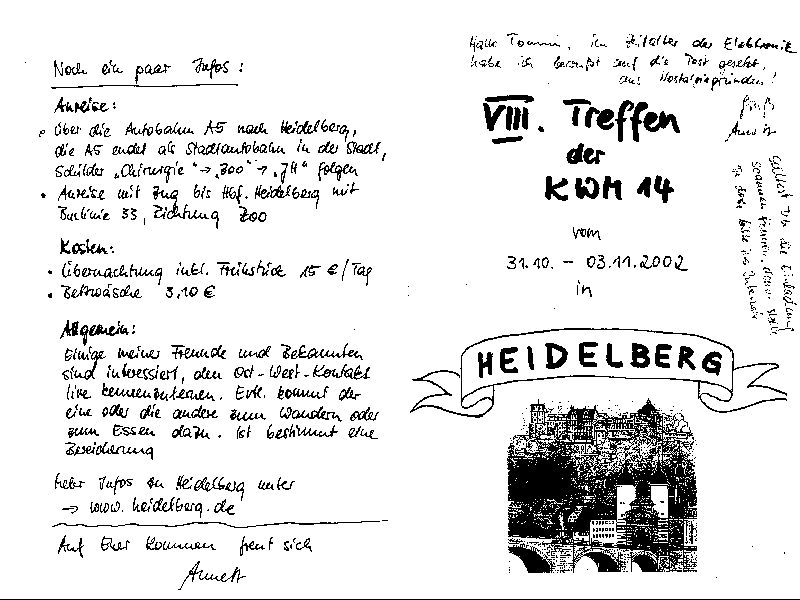 Noch ein paar Infos:
Anreise:
• Über die Autobahn A5 nach Heidelberg,
die A5 endet als Stadtautobahn in der Stadt,
Schilder „Chirurgie“ → „Zoo“ → „JH“ folgen
• Anreise mit Zug bis Hbf. Heidelberg mit
Buslinie 33, Richtung Zoo
Kosten:
• Übernachtung inkl. Frühstück 15 € / Tag
• Bettwäsche 3,10 €
Allgemein:
Einige meiner Freunde und Bekannten
sind interessiert, den Ost-West-Kontakt
live kennenzulernen. Evtl. kommt der
eine oder die andere zum Wandern oder
zum Essen dazu. Ist bestimmt eine
Bereicherung
Mehr Infos zu Heidelberg unter
→ www.heidelberg.de
Auf Euer Kommen freut sich
Annett
Hallo Tommi, im Zeitalter der Elektronik
habe ich bewußt auf die Post gesetzt,
aus Nostalgiegründen!
Gruß
Annett
Solltest Du die Einladung
scannen können, dann stelle
sie doch bitte ins Internet
VIII. Treffen
der
KWM 14
vom
31.10. – 03.11.2002
in
HEIDELBERG